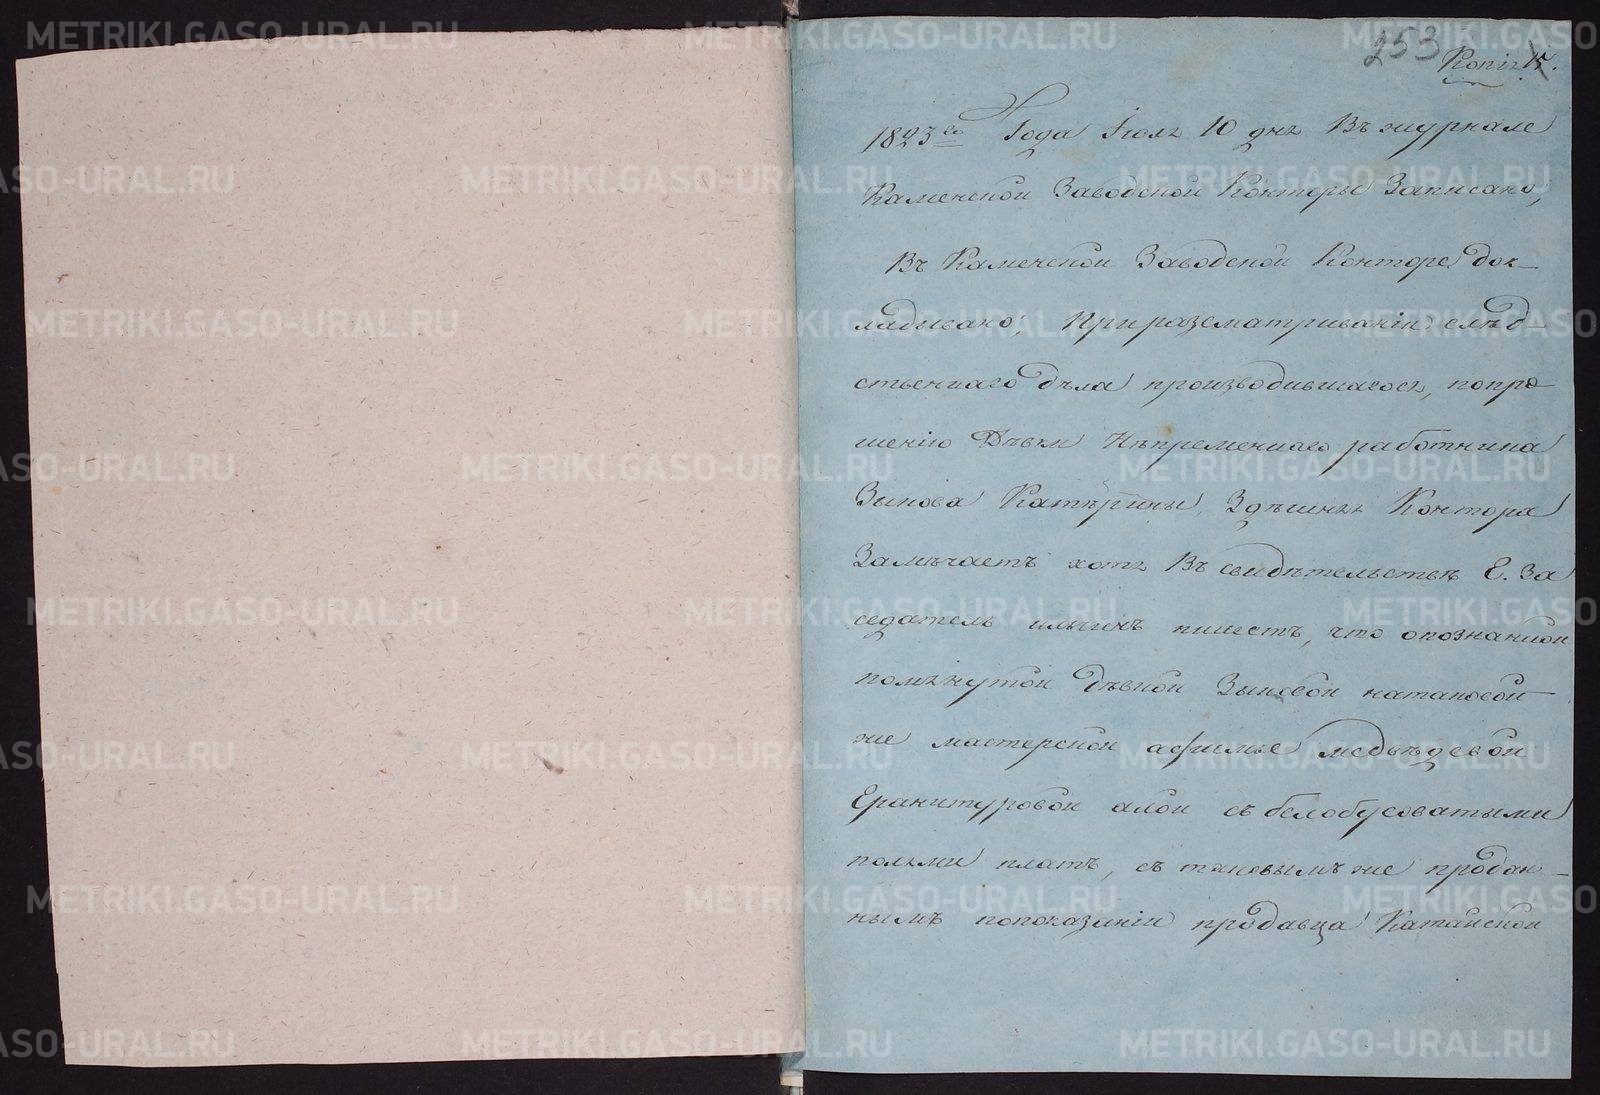 253
Копія 15.
1823го Года Іюля 10 дня Въ журнале
Каменской Заводской Конторы Записано,
Въ Каменской Заводской Конторе док-
ладывано; При разсматриваніи след-
ственнаго дѣла производившагося, попро-
шенію Дѣвки Непременнаго работника
Зыкова Катерины, Здѣшняя Контора
Замѣчаетъ хотя Въ свидѣтельстве Г. За
седатель пишетъ, что опознанной
помянутой дѣвкой Зыковой
же мастерской афимье медвѣдевой
Гранитуровой алой съ белобусоватыми
полями платъ, съ таковымъ же продан-
нымъ попоказанію продавца Катайской
METRIKI.GASO-URAL.RU